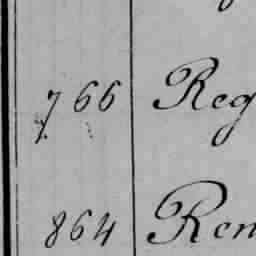 766 Reg
864 Ren